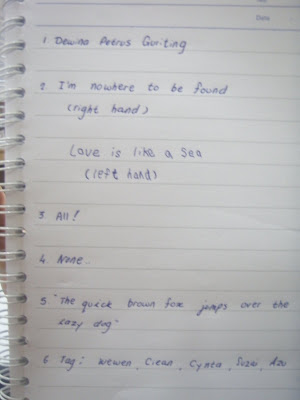 Date
1. Dewina Petrus Guriting
2. I'm nowhere to be found
(right hand)
Love is like a Sea
(left hand)
3. All!
4. None..
5. "The quick brown fox jumps over the
lazy dog"
6. Tag: Wewen, Ciean, Cynta, Suzai, Azu